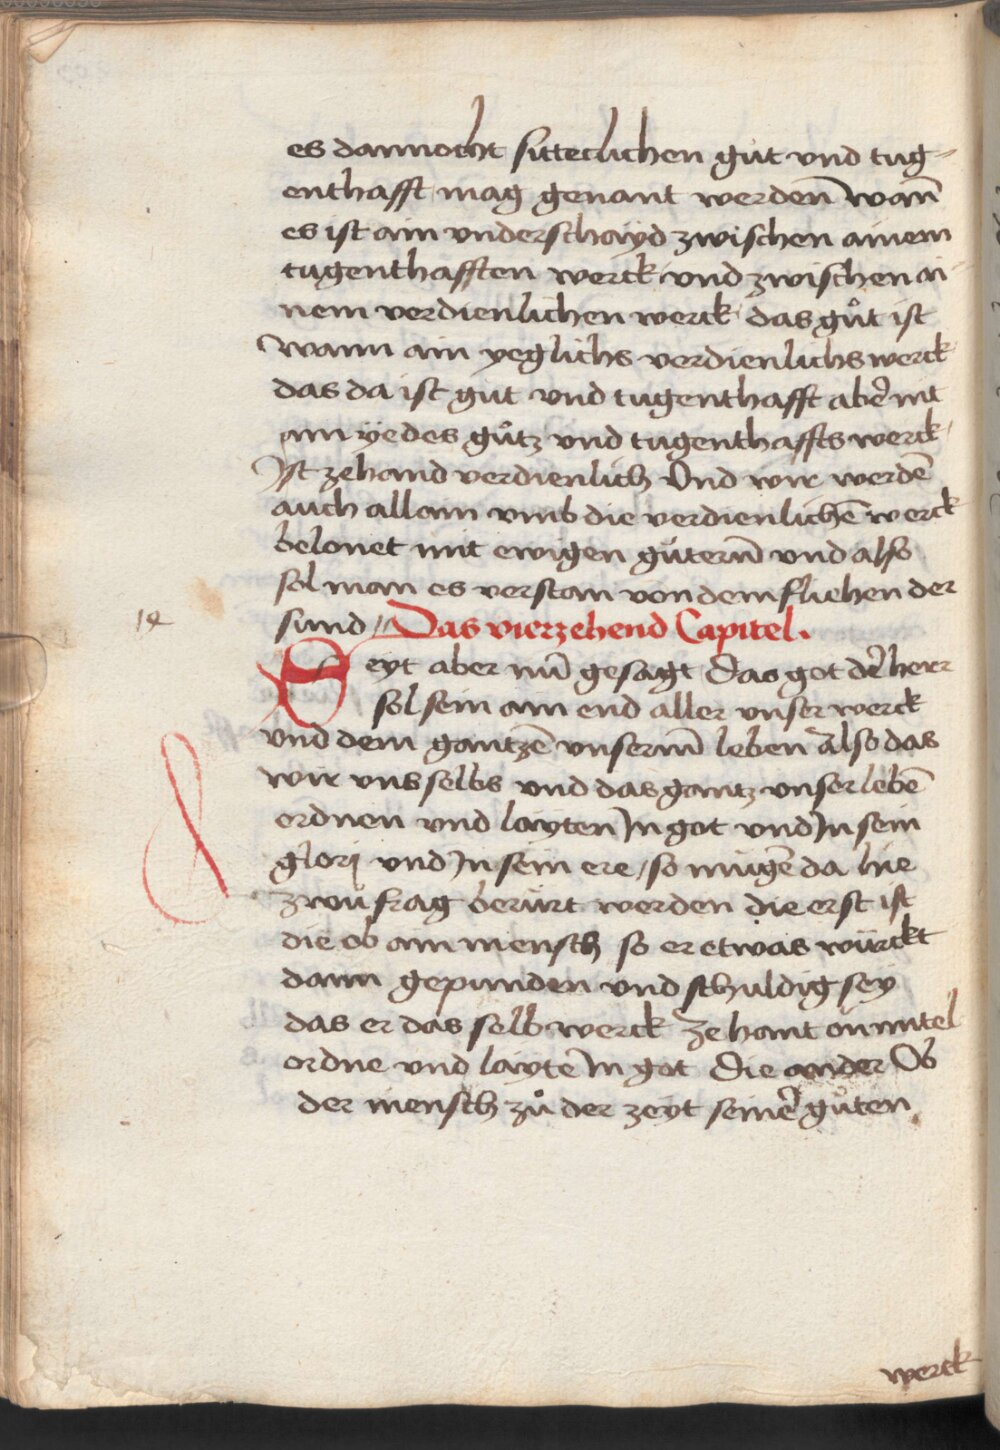 es dannocht sitteclichen gůt vnd tug-
enthafft mag genant werden̄ wan̄
es ist ain vnderschayd zwischen ainem
tugenthafften werck vnd zwischen ai-
nem verdienlichen werck das gůt ist
wann ain yeglichs verdienlichs werck
das da ist gut vnd tugenthafft aber̄ nit
ain yedes gůtz vnd tugenthaffts werck
Ist zehand verdienlich Vnd wir werdē
auch allain vmb die verdienlichē werck
belonet mit ewigen gůtern̄ vnd also
sol man es verstan von dem fliehen der
sünd / Das vierzehend Capitel.
14
Seyt aber nū gesagt das got der̄ herr
sol sein ain end aller vnser werck
vnd dem gantzē vnserm̄ leben also das
wir vns selbs vnd das gantz vnser lebē
ordnen vnd layten In got vnd In sein
glorj vnd In sein ere / so mügē da hie
zwu frag berürt werden die erst ist
die ob ain mensch so er etwas würckt
dann gepunden vnd schuldig sey
das er das selb werck zehant on mitel
ordne vnd laytē In got die ander Ob
der mensch zů der zeyt seiner̄ gůten
werck